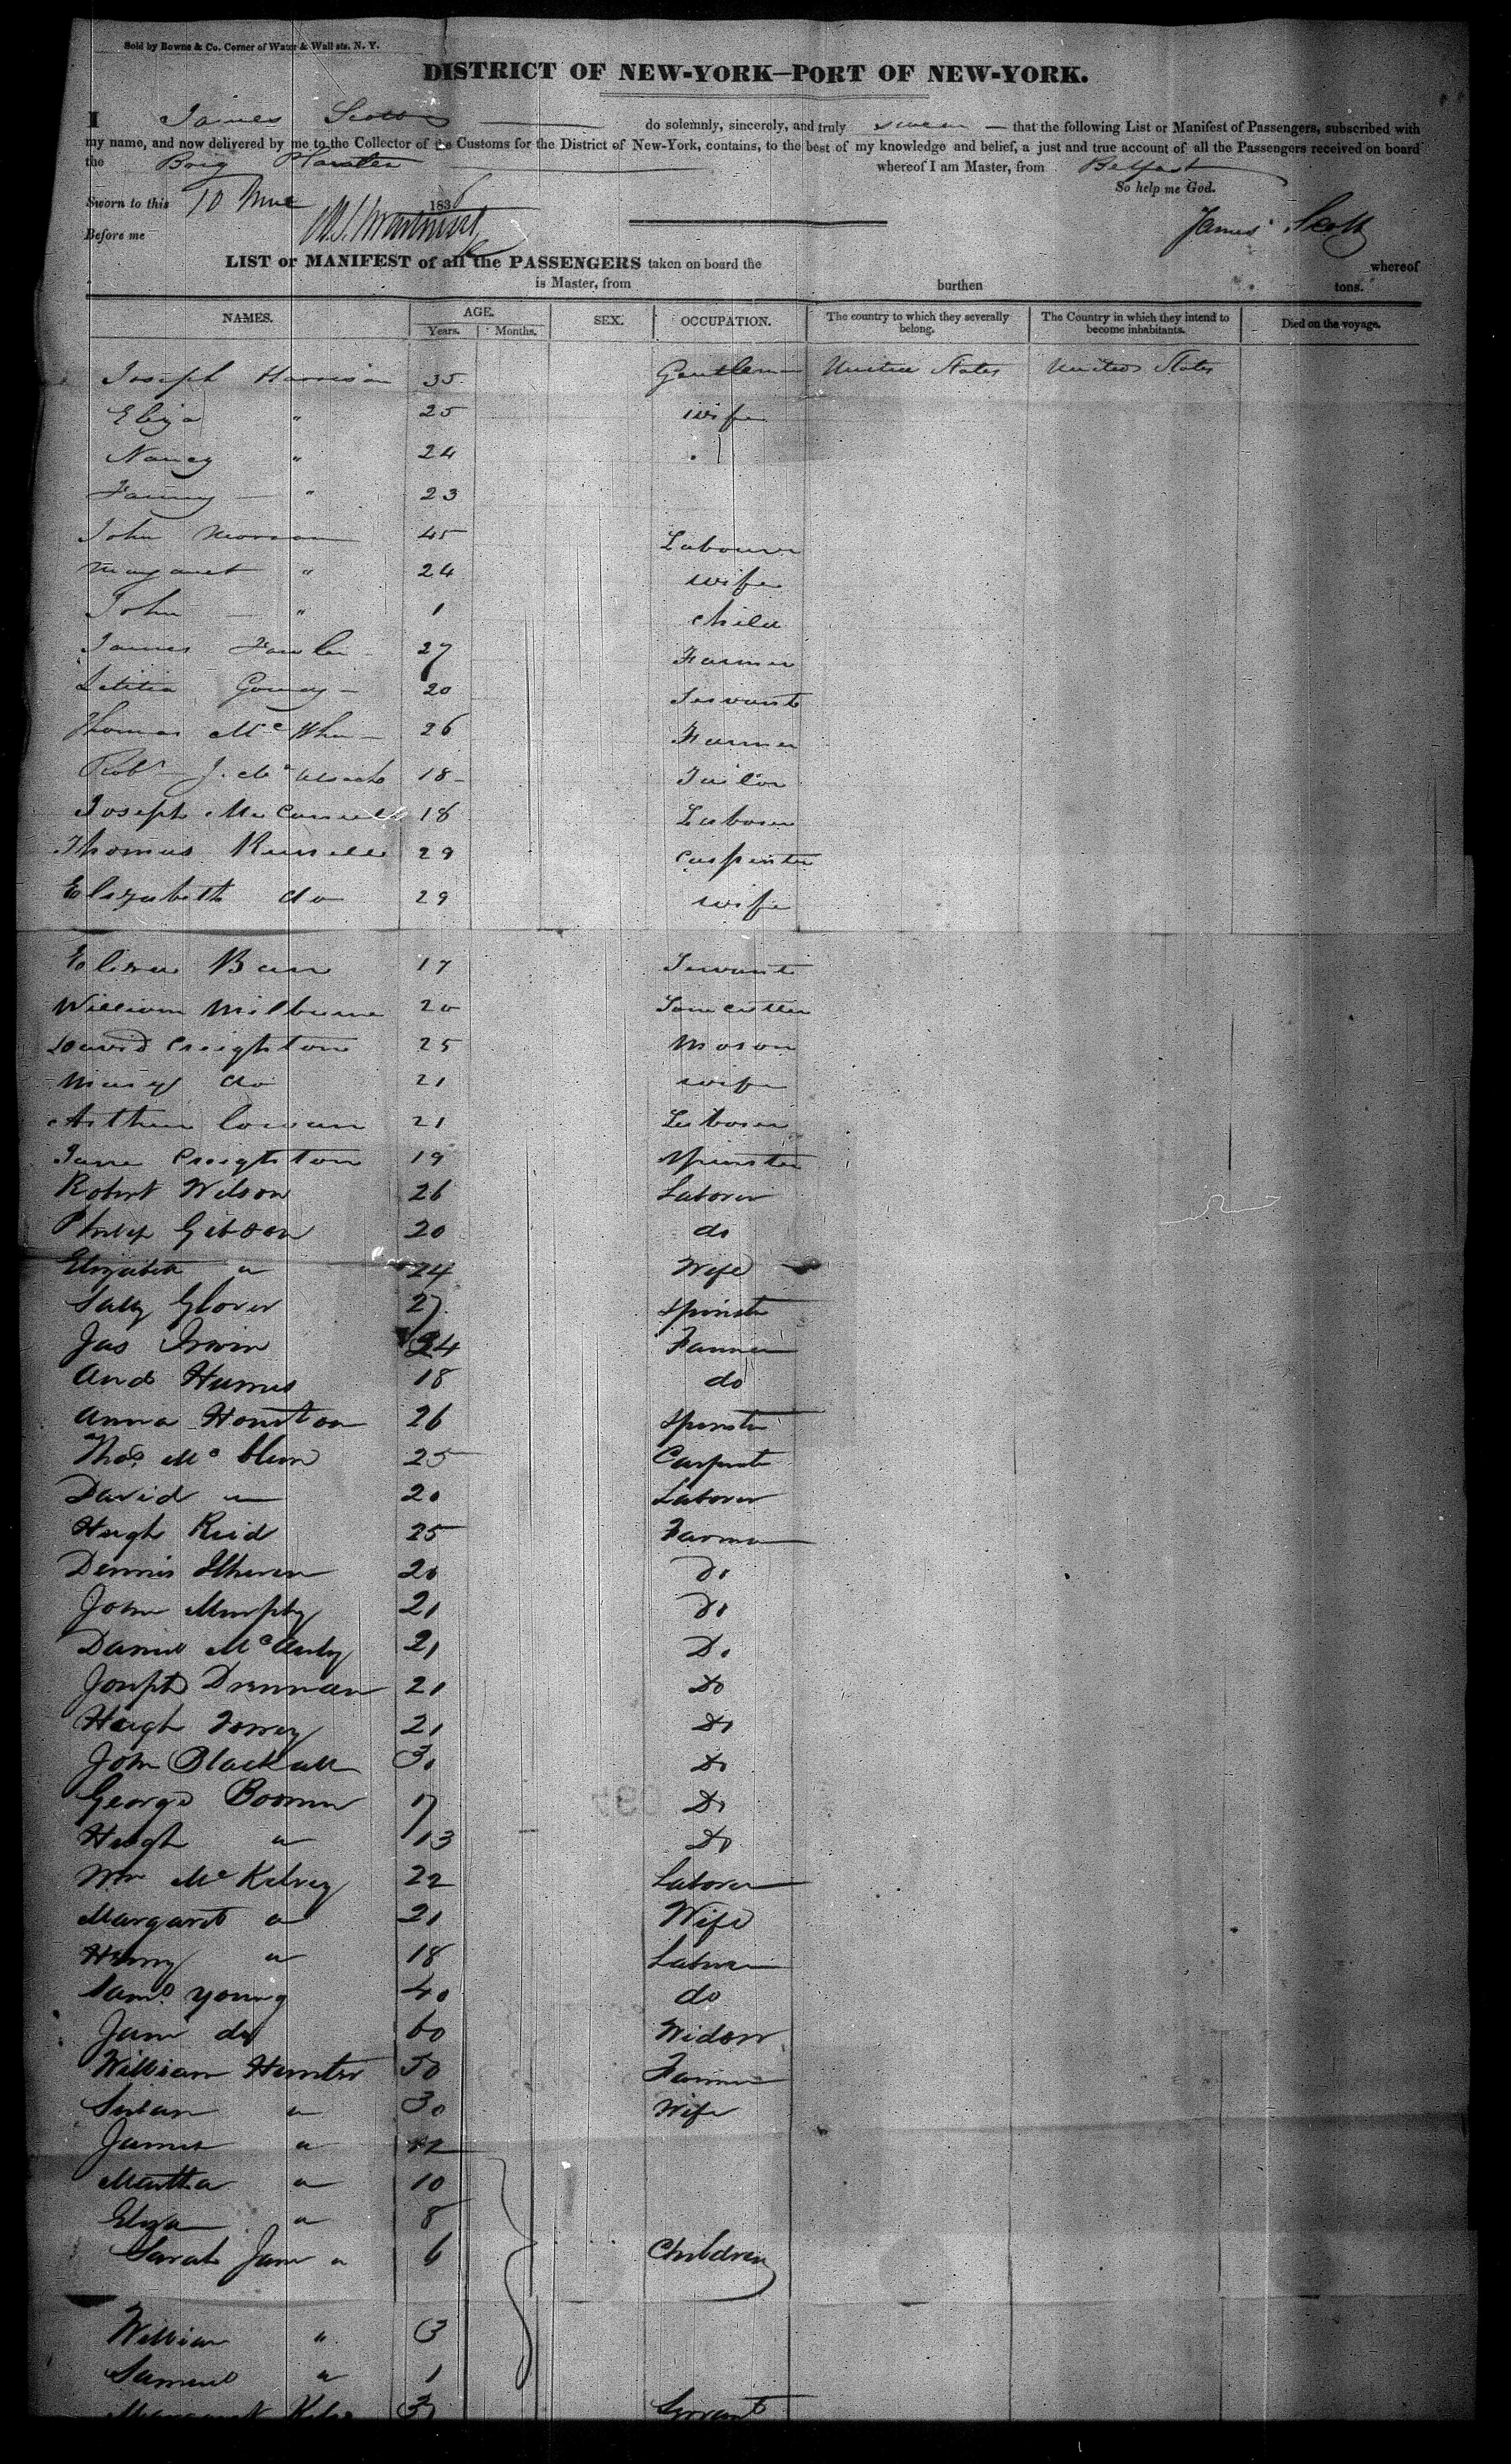 Sold by Bowne & Co. Corner of Water & Wall sts. N. Y.
DISTRICT OF NEW-YORK—PORT OF NEW-YORK.
I James Scott do solemnly, sincerely, and truly swear — that the following List or Manifest of Passengers, subscribed with
my name, and now delivered by me to the Collector of the Customs for the District of New-York, contains, to the best of my knowledge and belief, a just and true account of all the Passengers received on board
the Brig whereof I am Master, from Belfast
So help me God.
Sworn to this 10 1836
James Scott
Before me
LIST or MANIFEST of all the PASSENGERS taken on board the whereof
is Master, from burthen tons.
NAMES. AGE. SEX. OCCUPATION. The country to which they severally belong. The Country in which they intend to become inhabitants. Died on the voyage.
Years. Months.
Joseph Harrison 35 Gentleman United States United States
Eliza " 25 wife
Nancy " 24 "
Fanny — " 23
John 45 Labourer
Margaret " 24 wife
John — " 1 child
James 27 Farmer
Letitia 20 Servant
Thomas 26 Farmer
Robt J. 18 Tailor
Joseph McConnell 18 Laborer
Thomas Russell 29 Carpenter
Elizabeth do 29 wife
Eliza 17 Servant
William Milburne 20
David Creighton 25 Mason
Mary do 21 wife
Arthur Cowan 21 Laborer
Jane Creighton 19 Spinster
Robert Wilson 26 Laborer
Philip Gibson 20 do
Elizabeth " 24 Wife
Sally Glover 27 Spinster
Jas Irwin 24 Farmer
And Humes 18 do
Anna Houston 26 Spinster
Thos. Mc 25 Carpenter
David " 20 Laborer
Hugh Reid 25 Farmer
Dennis 20 Do
John Murphy 21 Do
Daniel 21 Do
Joseph Drennan 21 Do
Hugh 21 Do
John 30 Do
George 17 Do
Hugh " 13 Do
Wm McKelvey 22 Laborer
Margaret " 21 Wife
Henry " 18 Laborer
Saml. Young 40 do
Jane do 60 Widow
William Hunter 50 Farmer
Susan " 30 Wife
James " 12
Martha " 10
Eliza " 8
Sarah Jane " 6 Children
William " 3
Samuel " 1
Margaret Servant